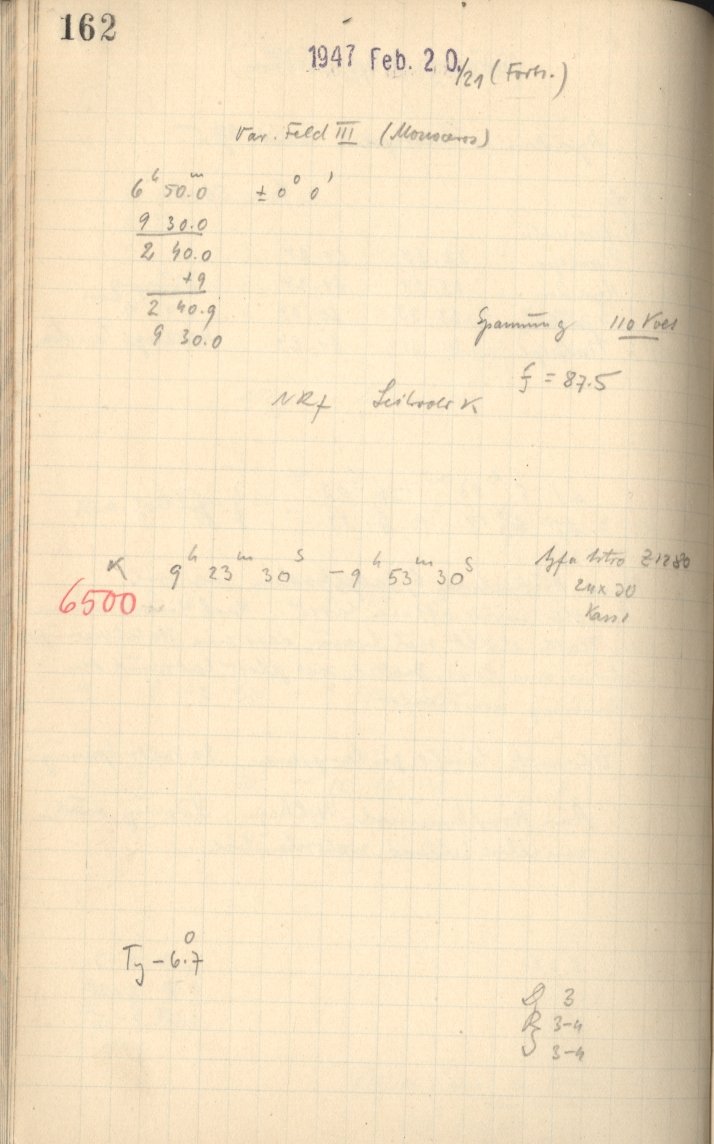 162
1947 Feb. 20./21 (Forts.)
Var. Feld III (Monoceros)
6ʰ 50.0ᵐ ± 0° 0'
9 30.0
2 40.0
+9
2 40.9
9 30.0
Spannung 110 Volt
f = 87.5
K 9ʰ 23ᵐ 30ˢ - 9ʰ 53ᵐ 30ˢ
Agfa Astro Z1280
6500
24x30
Kass 1
T₁ - 6.7°
D 3
R 3-4
3-4